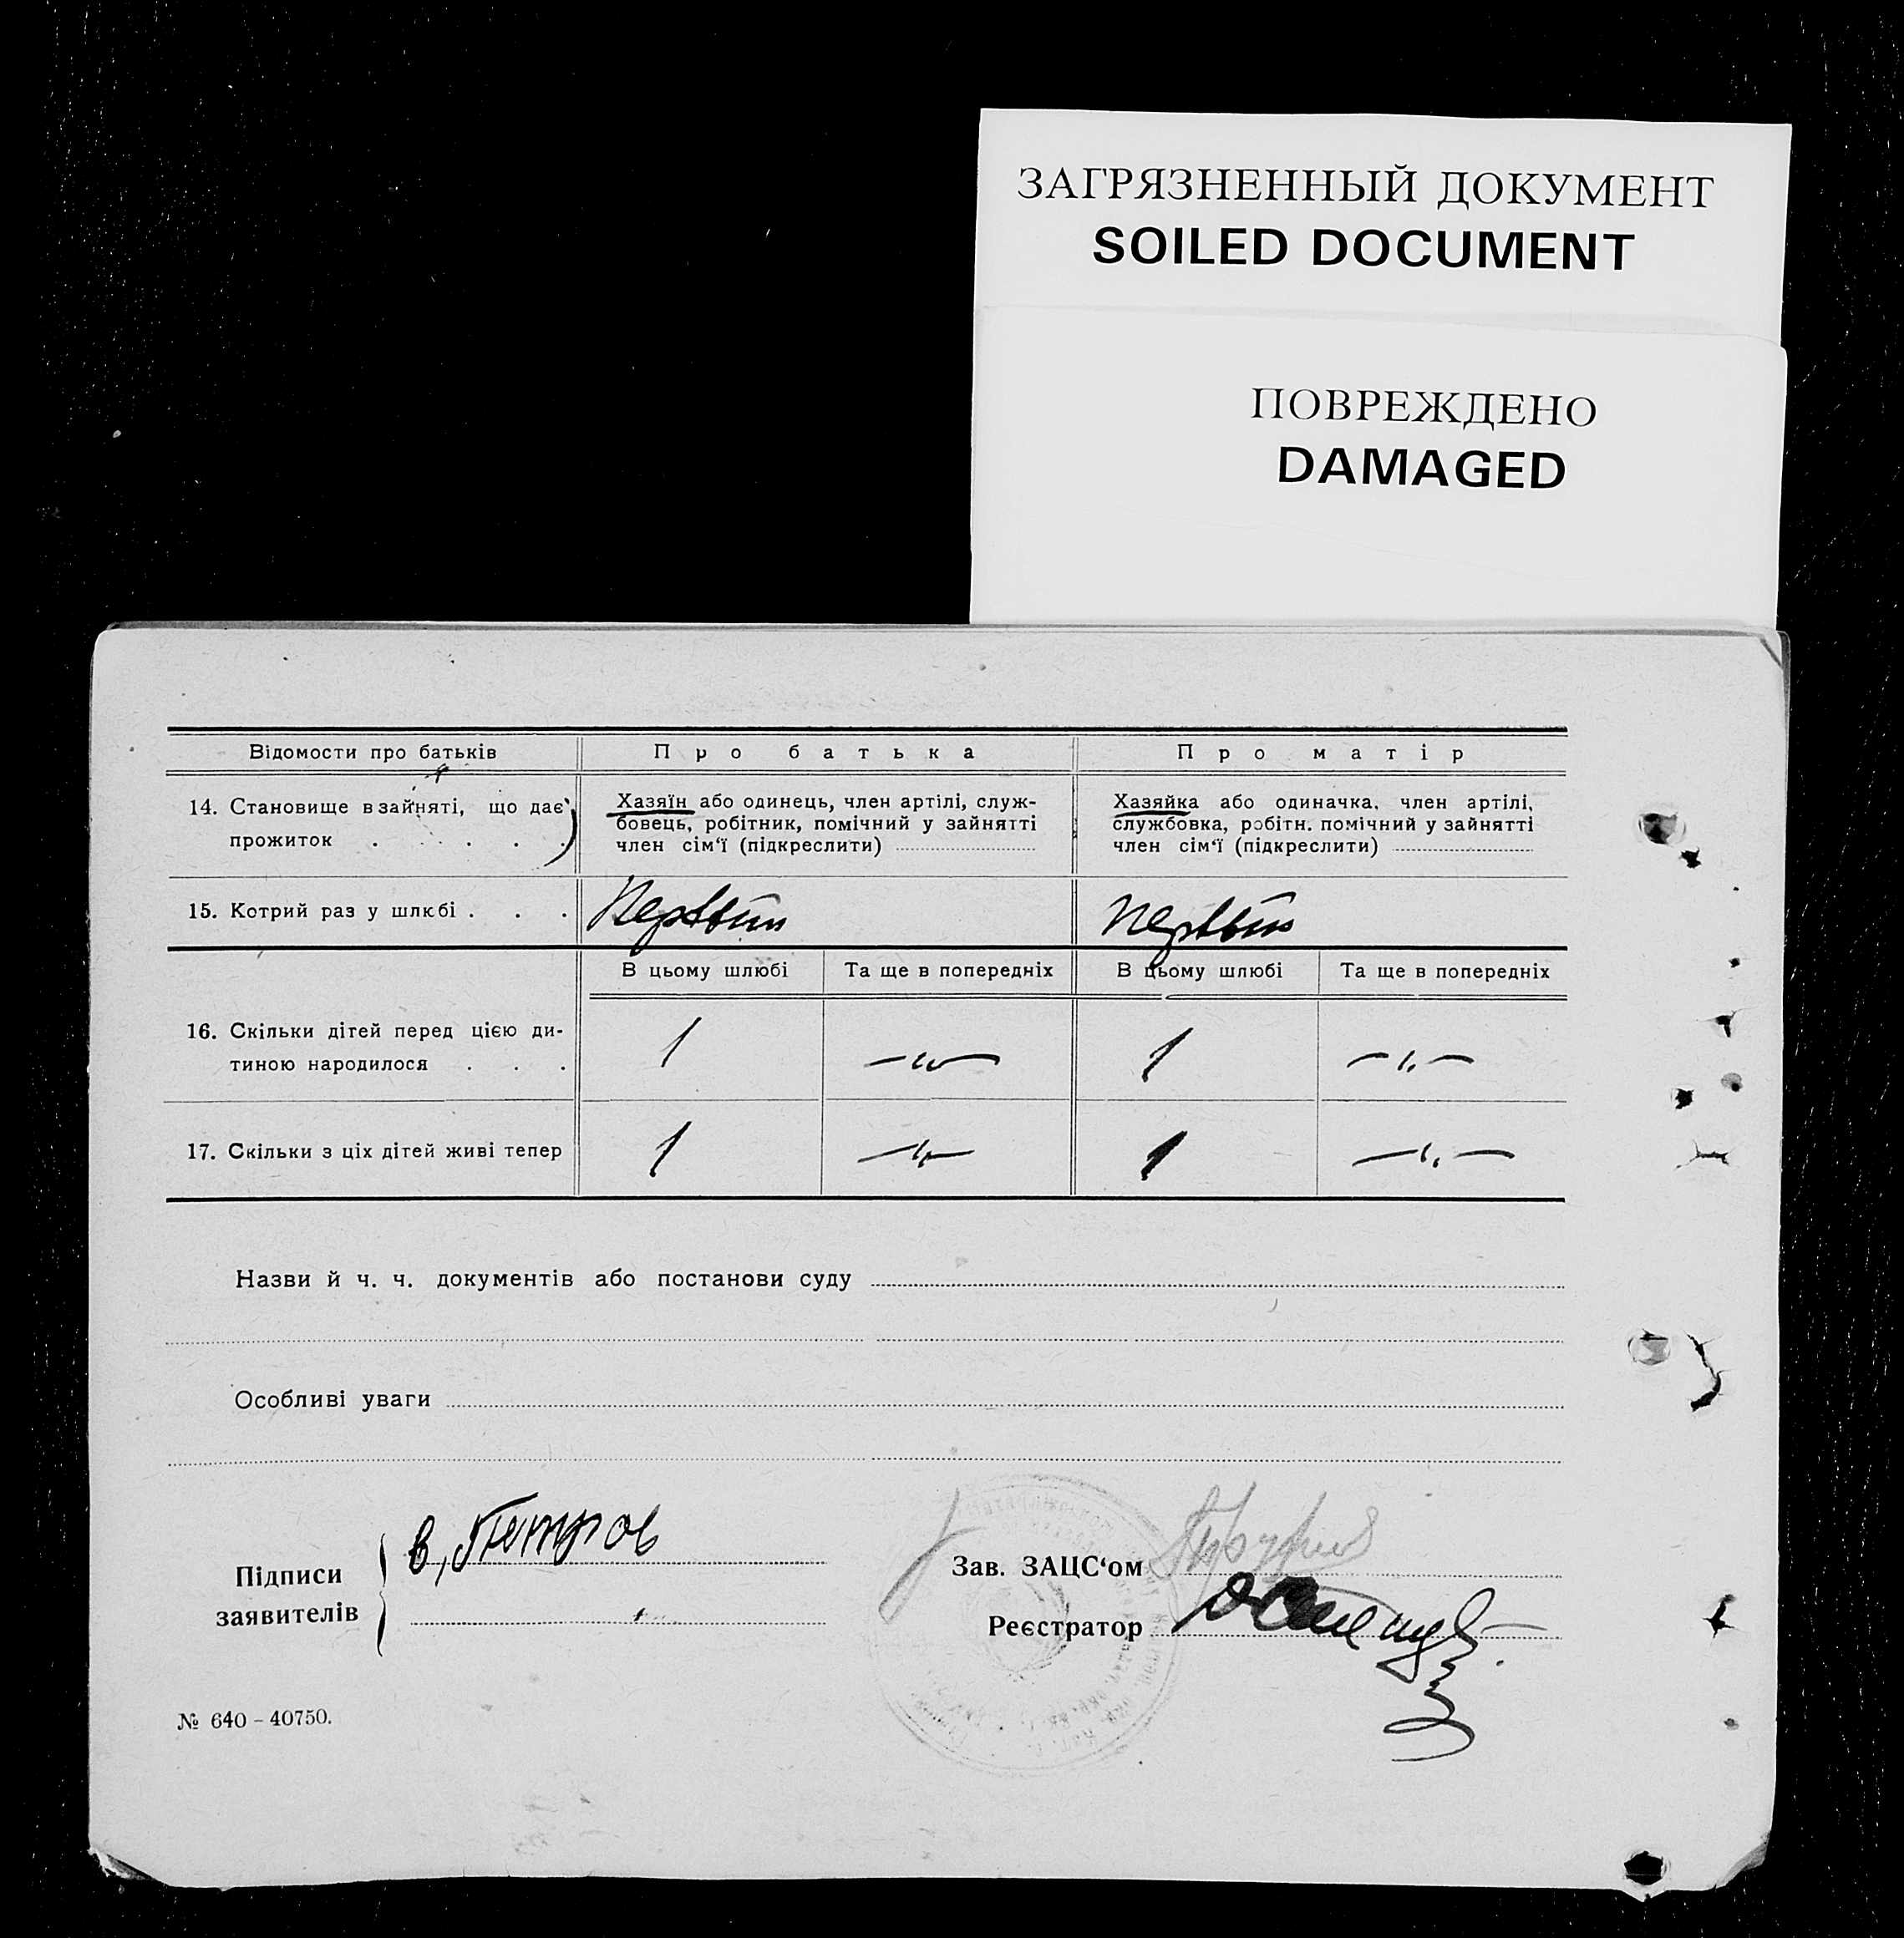 ЗАГРЯЗНЕННЫЙ ДОКУМЕНТ
SOILED DOCUMENT
ПОВРЕЖДЕНО
DAMAGED
Відомости про батьків
Про батька
Про матір
14. Становище в зайняті, що дає
прожиток . . . . .
Хазяїн або одинець, член артілі, служ-
бовець, робітник, помічний у зайнятті
член сім‘ї (підкреслити)
Хазяйка або одиначка, член артілі,
службовка, робітн. помічний у зайнятті
член сім‘ї (підкреслити)
15. Котрий раз у шлюбі . . .
Первый
Первый
В цьому шлюбі
Та ще в попередніх
В цьому шлюбі
Та ще в попередніх
16. Скільки дітей перед цією ди-
тиною народилося . . .
1
— " —
1
— " —
17. Скільки з ціх дітей живі тепер
1
— " —
1
— " —
Назви й ч. ч. документів або постанови суду
Особливі уваги
Підписи
заявителів
В, Петров
Зав. ЗАЦС‘ом
Реєстратор
№ 640 – 40750.